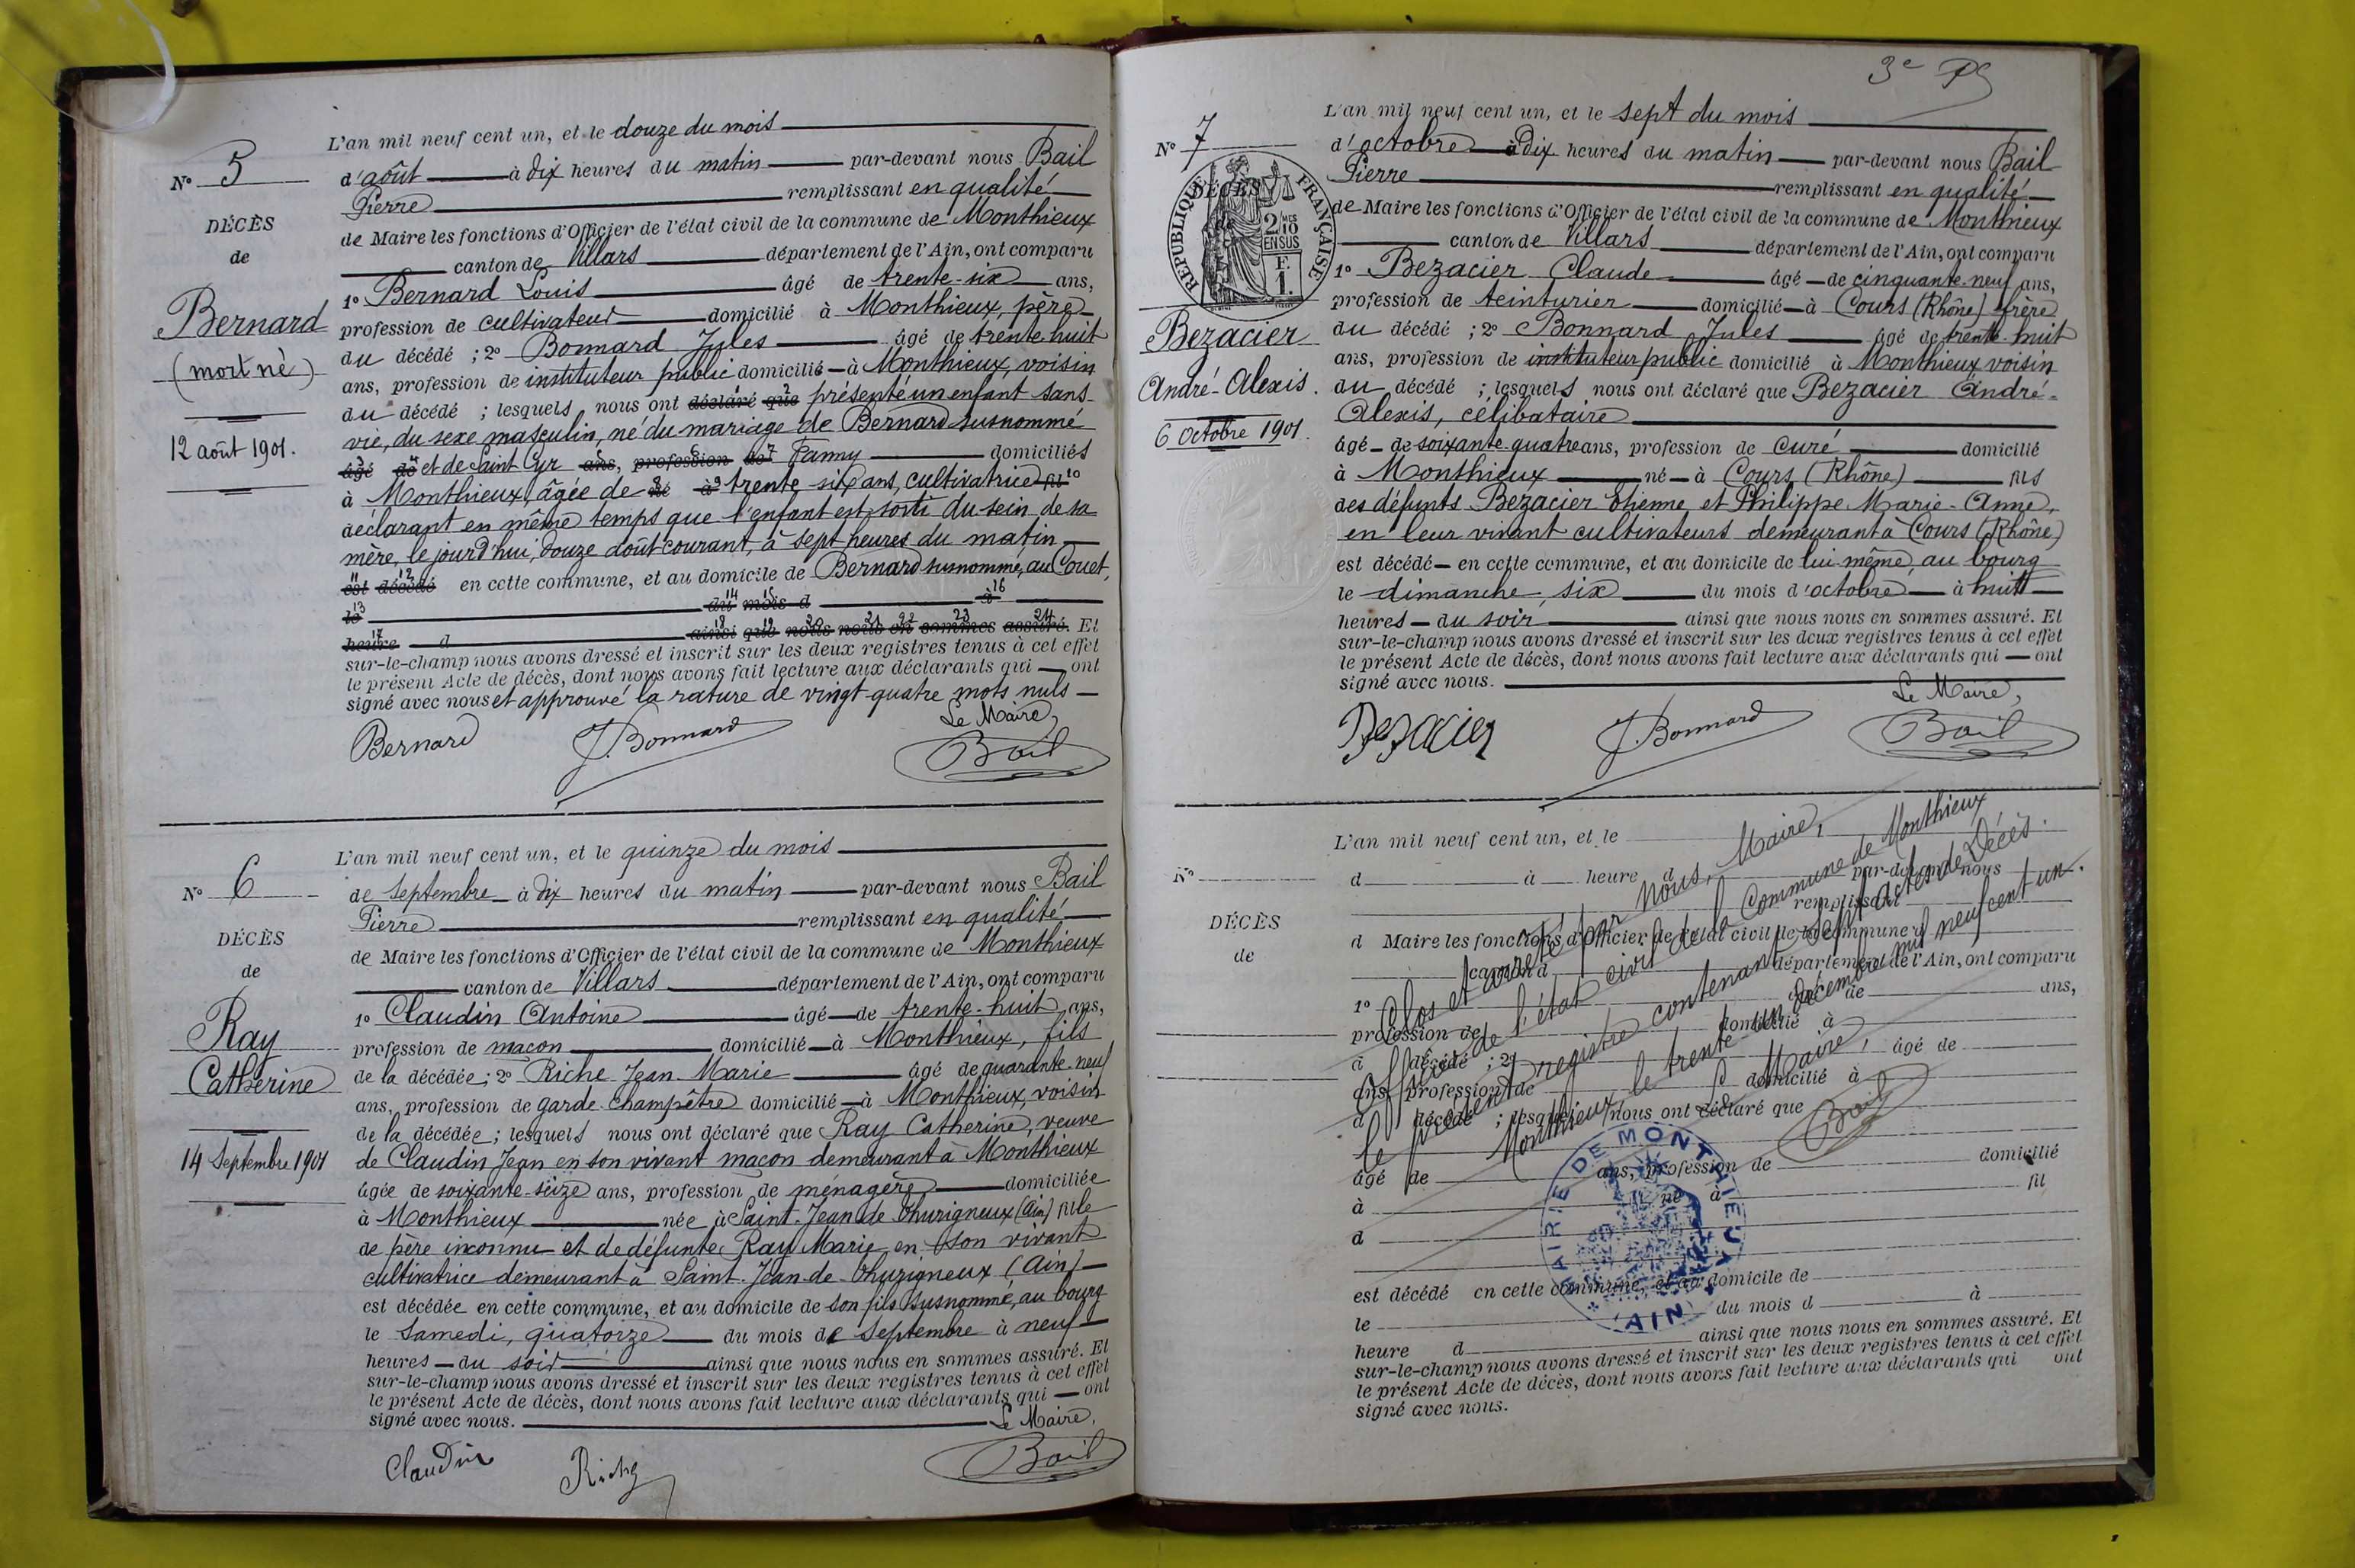 N° 5
DÉCÈS
de
Bernard
(mort né)
12 août 1901.
L'an mil neuf cent un, et le douze du mois
d'août à dix heures du matin par-devant nous Bail
Pierre remplissant en qualité
de Maire les fonctions d'Officier de l'état civil de la commune de Monthieux
canton de Villars département de l'Ain, ont comparu
1° Bernard Louis âgé de trente-six ans,
profession de cultivateur domicilié à Monthieux, père
du décédé ; 2° Bonnard Jules âgé de trente-huit
ans, profession de instituteur public domicilié à Monthieux, voisin
du décédé ; lesquels nous ont déclaré que présenté un enfant sans
vie, du sexe masculin, né du mariage de Bernard susnommé
âgé de et de Saint Cyr ans, profession de Fanny domiciliés
à Monthieux, âgée de né à trente six ans, cultivatrice fil
déclarant en même temps que l'enfant est sorti du sein de sa
mère, le jourd'hui, douze août courant, à sept heures du matin
est décédé en cette commune, et au domicile de Bernard susnommé, au Couet,
le du mois d à
heure d ainsi que nous nous en sommes assuré. Et
sur-le-champ nous avons dressé et inscrit sur les deux registres tenus à cet effet
le présent Acte de décès, dont nous avons fait lecture aux déclarants qui ont
signé avec nous et approuvé la rature de vingt-quatre mots nuls
Le Maire,
Bernard J. Bonnard Bail
N° 6
DÉCÈS
de
Ray
Catherine
14 Septembre 1901
L'an mil neuf cent un, et le quinze du mois
de Septembre à dix heures du matin par-devant nous Bail
Pierre remplissant en qualité
de Maire les fonctions d'Officier de l'état civil de la commune de Monthieux
canton de Villars département de l'Ain, ont comparu
1° Claudin Antoine âgé de trente-huit ans,
profession de maçon domicilié à Monthieux, fils
de la décédée ; 2° Riche Jean Marie âgé de quarante-neuf
ans, profession de garde-champêtre domicilié à Monthieux, voisin
de la décédée ; lesquels nous ont déclaré que Ray Catherine, veuve
de Claudin Jean en son vivant maçon demeurant à Monthieux
âgée de soixante-seize ans, profession de ménagère domiciliée
à Monthieux née à Saint-Jean de Thurigneux (Ain) fille
de père inconnu et de défunte Ray Marie en son vivant
cultivatrice demeurant à Saint-Jean-de-Thurigneux (Ain)
est décédée en cette commune, et au domicile de son fils susnommé, au bourg
le Samedi, quatorze du mois de Septembre à neuf
heures du soir ainsi que nous nous en sommes assuré. Et
sur-le-champ nous avons dressé et inscrit sur les deux registres tenus à cet effet
le présent Acte de décès, dont nous avons fait lecture aux déclarants qui ont
signé avec nous.
Le Maire,
Claudin Riche Bail
3e
N° 7
DÉCÈS
RÉPUBLIQUE FRANÇAISE
2/10 EN SUS
F. 1.
Bezacier
André-Alexis.
6 Octobre 1901.
L'an mil neuf cent un, et le sept du mois
d'octobre à dix heures du matin par-devant nous Bail
Pierre remplissant en qualité
de Maire les fonctions d'Officier de l'état civil de la commune de Monthieux
canton de Villars département de l'Ain, ont comparu
1° Bezacier Claude âgé de cinquante-neuf ans,
profession de teinturier domicilié à Cours (Rhône) frère
du décédé ; 2° Bonnard Jules âgé de trente-huit
ans, profession de instituteur public domicilié à Monthieux voisin
du décédé ; lesquels nous ont déclaré que Bezacier André-
Alexis, célibataire
âgé de soixante-quatre ans, profession de curé domicilié
à Monthieux né à Cours (Rhône) fils
des défunts Bezacier Etienne et Philippe Marie-Anne,
en leur vivant cultivateurs demeurant à Cours (Rhône)
est décédé en cette commune, et au domicile de lui-même, au bourg
le dimanche, six du mois d'octobre à huit
heures du soir ainsi que nous nous en sommes assuré. Et
sur-le-champ nous avons dressé et inscrit sur les deux registres tenus à cet effet
le présent Acte de décès, dont nous avons fait lecture aux déclarants qui ont
signé avec nous.
Le Maire,
Bezacier J. Bonnard Bail
N°
DÉCÈS
de
L'an mil neuf cent un, et le
d à heure d par-devant nous
remplissant
d Maire les fonctions d'Officier de l'état civil de la commune d
canton d département de l'Ain, ont comparu
1° âgé de ans,
profession de domicilié à
d décédé ; 2° âgé de
ans, profession de domicilié à
d décédé ; lesquels nous ont déclaré que
âgé de ans, profession de domicilié
à né à fil
d
est décédé en cette commune, et au domicile de
le du mois d à
heure d ainsi que nous nous en sommes assuré. Et
sur-le-champ nous avons dressé et inscrit sur les deux registres tenus à cet effet
le présent Acte de décès, dont nous avons fait lecture aux déclarants qui ont
signé avec nous.
Clos et arrêté par nous, Maire,
Officier de l'état civil de la Commune de Monthieux
le présent registre contenant sept actes de Décès.
Monthieux, le trente-un décembre mil neuf cent un.
Le Maire,
Bail
MAIRIE DE MONTHIEUX
(AIN)